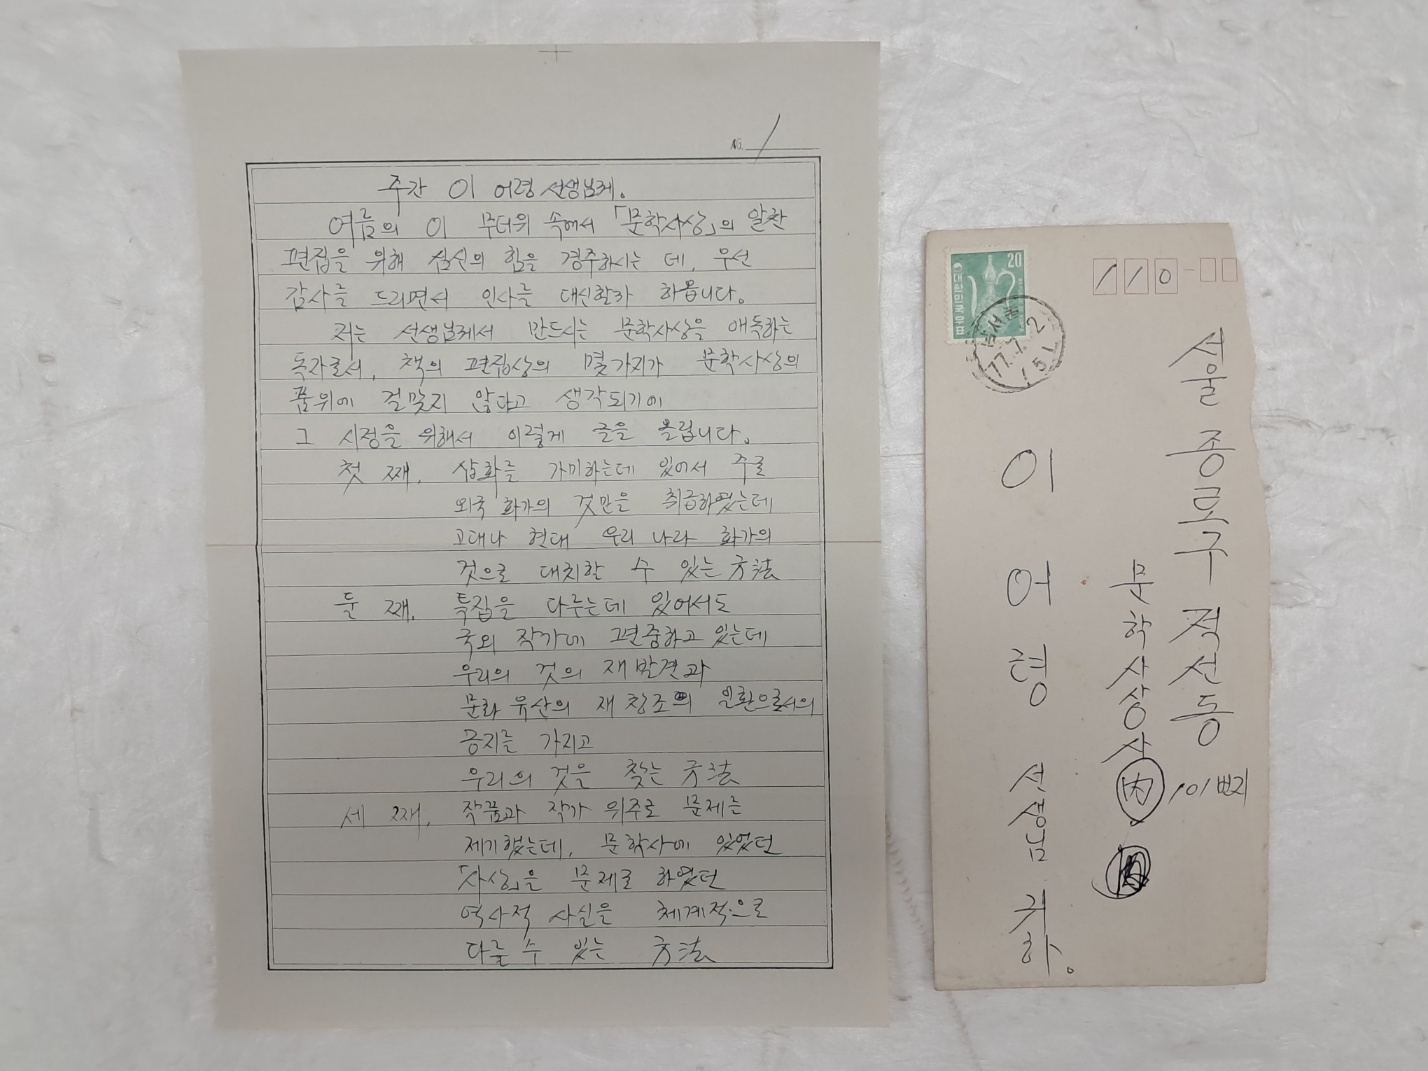 No. 1
주간 이 어령 선생님께.
여름의 이 무더위 속에서 「문학사상」의 알찬
편집을 위해 심신의 힘을 경주하시는 데, 우선
감사를 드리면서 인사를 대신할까 하옵니다.
저는 선생님께서 만드시는 문학사상을 애독하는
독자로서, 책의 편집상의 몇가지가 문학사상의
품위에 걸맞지 않다고 생각되기에
그 시정을 위해서 이렇게 글을 올립니다.
첫 째, 삽화를 가미하는데 있어서 주로
외국 화가의 것만을 취급하였는데
고대나 현대 우리 나라 화가의
것으로 대치할 수 있는 方法
둘 째, 특집을 다루는데 있어서도
국외 작가에 편중하고 있는데
우리의 것의 재 발견과
문화 유산의 재 창조의 일환으로서의
긍지를 가지고
우리의 것을 찾는 方法
세 째, 작품과 작가 위주로 문제를
제기했는데, 문학사에 있었던
「사상」을 문제로 하였던
역사적 사실을 체계적으로
다룰 수 있는 方法
20
대한민국우표
77.7.2
110-
서울 종로구 적선동
101번지
문학사상사 內
이 어령 선생님 귀하.